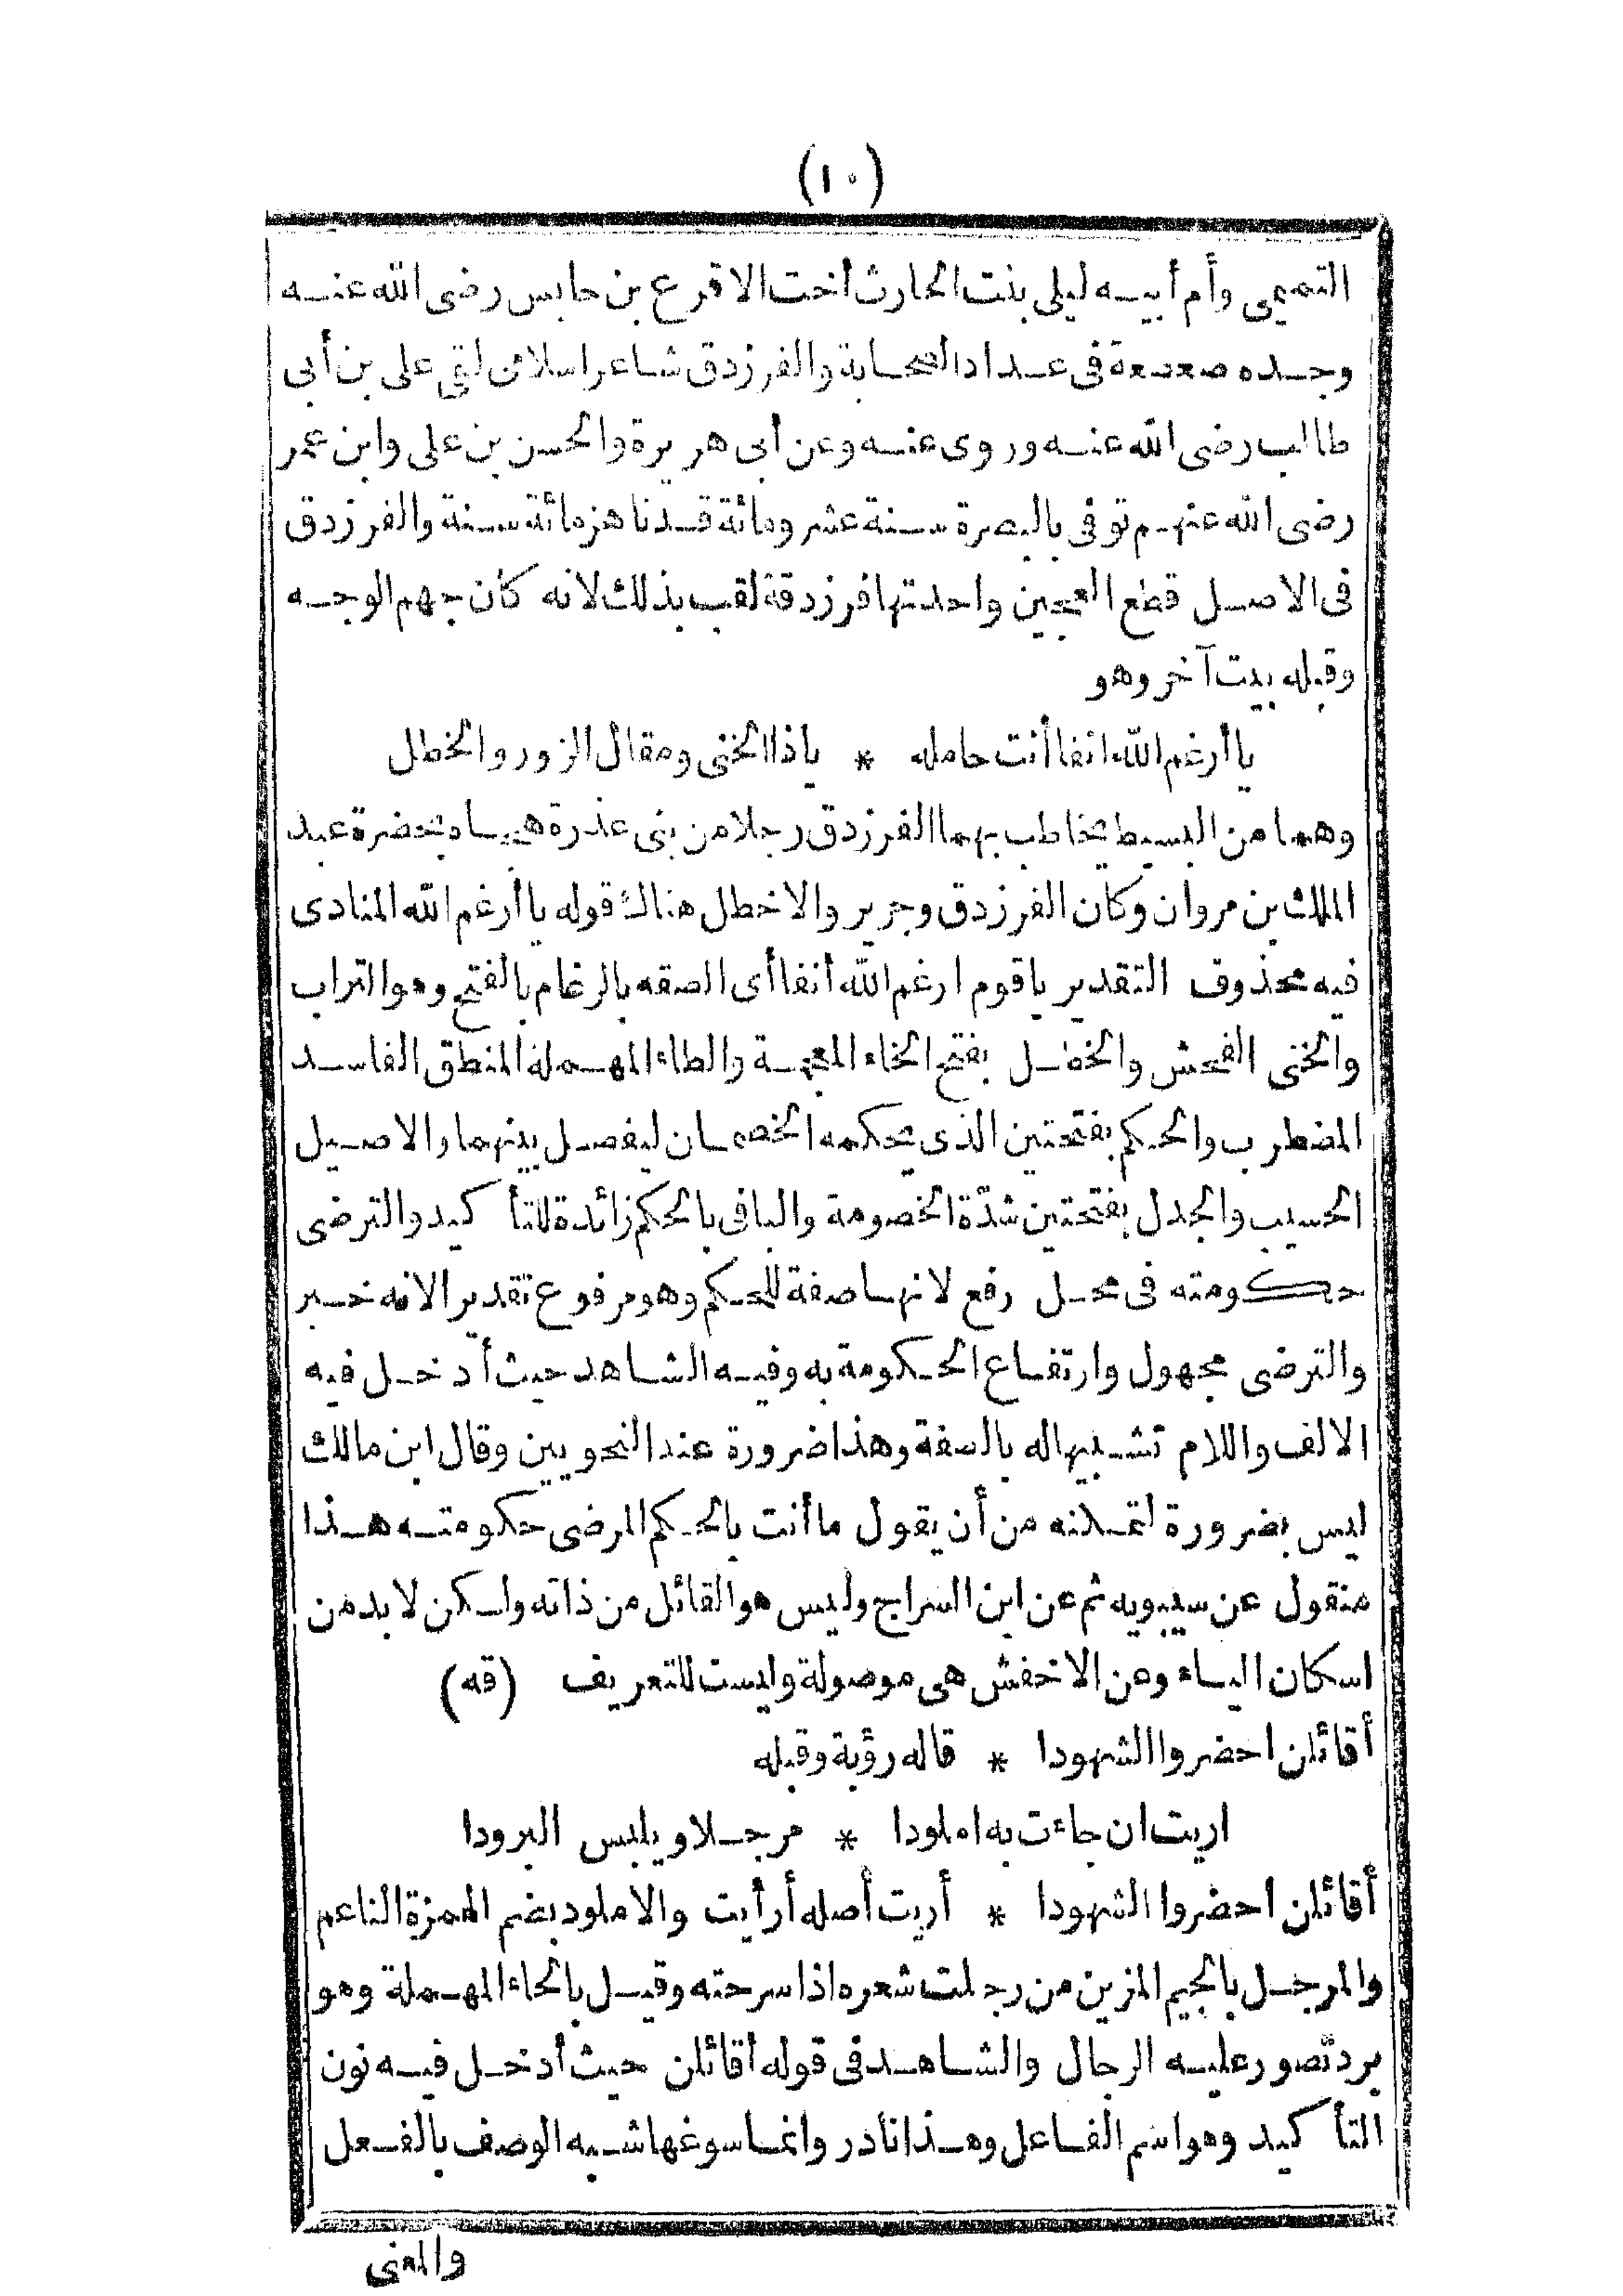 (١٠)
التميمى وأم أبيه ليلى بنت الحارث أخت الاقرع بن حابس رضى الله عنه
وجده صعصعة فى عداد الصحابة والفرزدق شاعر اسلامى لقى على بن أبى
طالب رضى الله عنه وروى عنه وعن أبى هريرة والحسن بن على وابن عمر
رضى الله عنهم توفى بالبصرة سنة عشر ومائة قد ناهز مائة سنة والفرزدق
فى الاصل قطع العجين واحدتها فرزدقة لقب بذلك لانه كان جهم الوجه
وقبله بيت آخر وهو
يا أرغم الله انفا أنت حامله * ياذا الخنى ومقال الزور والخطل
وهما من البسيط يخاطب بهما الفرزدق رجلا من بنى عذرة هجاه بحضرة عبد
الملك بن مروان وكان الفرزدق وجرير والاخطل هناك قوله يا أرغم الله المنادى
فيه محذوف التقدير ياقوم ارغم الله أنفا أى الصقه بالرغام بالفتح وهو التراب
والخنى الفحش والخطل بفتح الخاء المعجمة والطاء المهملة المنطق الفاسد
المضطرب والحكم بفتحتين الذى يحكمه الخصمان ليفصل بينهما والاصيل
الحسيب والجدل بفتحتين شدّة الخصومة والبافى بالحكم زائدة للتأكيد والترضى
حكومته فى محل رفع لانها صفة للحكم وهو مرفوع تقديرا لانه خبر
والترضى مجهول وارتفاع الحكومة به وفيه الشاهد حيث أدخل فيه
الالف واللام تشبيها له بالصفة وهذا ضرورة عند النحويين وقال ابن مالك
ليس بضرورة لتمكنه من أن يقول ما أنت بالحكم المرضى حكومته هذا
منقول عن سيبويه ثم عن ابن السراج وليس هو القائل من ذاته ولكن لابد من
اسكان الياء وعن الاخفش هى موصولة وليست للتعريف (قه)
أقائلن احضروا الشهودا * قاله رؤبة وقبله
اريت ان جاءت به املودا * مرجلا ويلبس البرودا
أقائلن احضروا الشهودا * أريت أصله أرأيت والاملود بضم الهمزة الناعم
والمرجل بالجيم المزين من رجلت شعره اذا سرحته وقيل بالحاء المهملة وهو
برد تصور عليه الرحال والشاهد فى قوله أقائلن حيث أدخل فيه نون
التأكيد وهو اسم الفاعل وهذا نادر وانما سوغها شبه الوصف بالفعل
والمعنى